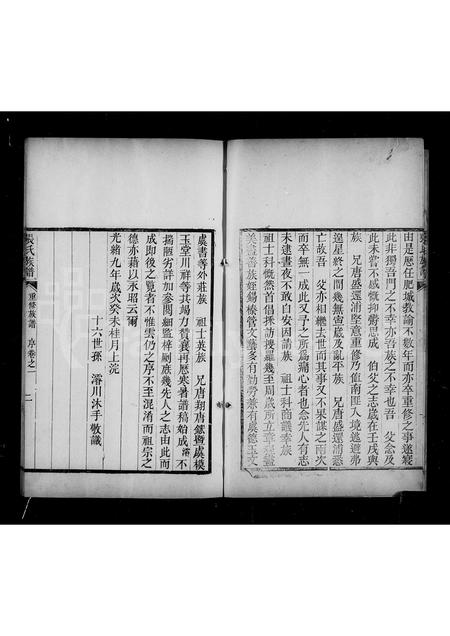 由是歷任肥城教諭不數年而亦卒重修之事遂寢
此非獨吾門之不幸亦吾族之不幸也 父念及
此未嘗不感慨抑鬱思成 伯父之志歲在壬戌與
族 兄唐盛還浦堅意重修乃值南匪入境逃避弗
遑星終之間幾無寧歲及亂平族 兄唐盛還浦悉
亡故吾 父亦相繼去世而其事又不果謀之雨次
而卒無一成此又予之所爲痛心者也念先人有志
未逮晝夜不敢自安因請族 祖士科商議奉族
祖士科慨然首倡採訪搜羅幾至周歲所立章程盡
美盡善族姪錫榛管文藝多有勤勞兼有虞德玉文
虞書等外莊族 祖士英族 兄唐翔唐鑑暨虞模
玉堂川祥等共竭力贊襄再歷寒暑譜稿始成濬不
揣陋劣詳加參閱細監梓刷庶幾先人之志由此而
成即後之覽者不惟雲仍之序不至混淆而祖宗之
德亦藉以永昭云爾
光緒九年歲次癸未桂月上浣
十六世孫 濬川沐手敬識
張氏族譜
重修族譜 序卷之一
二